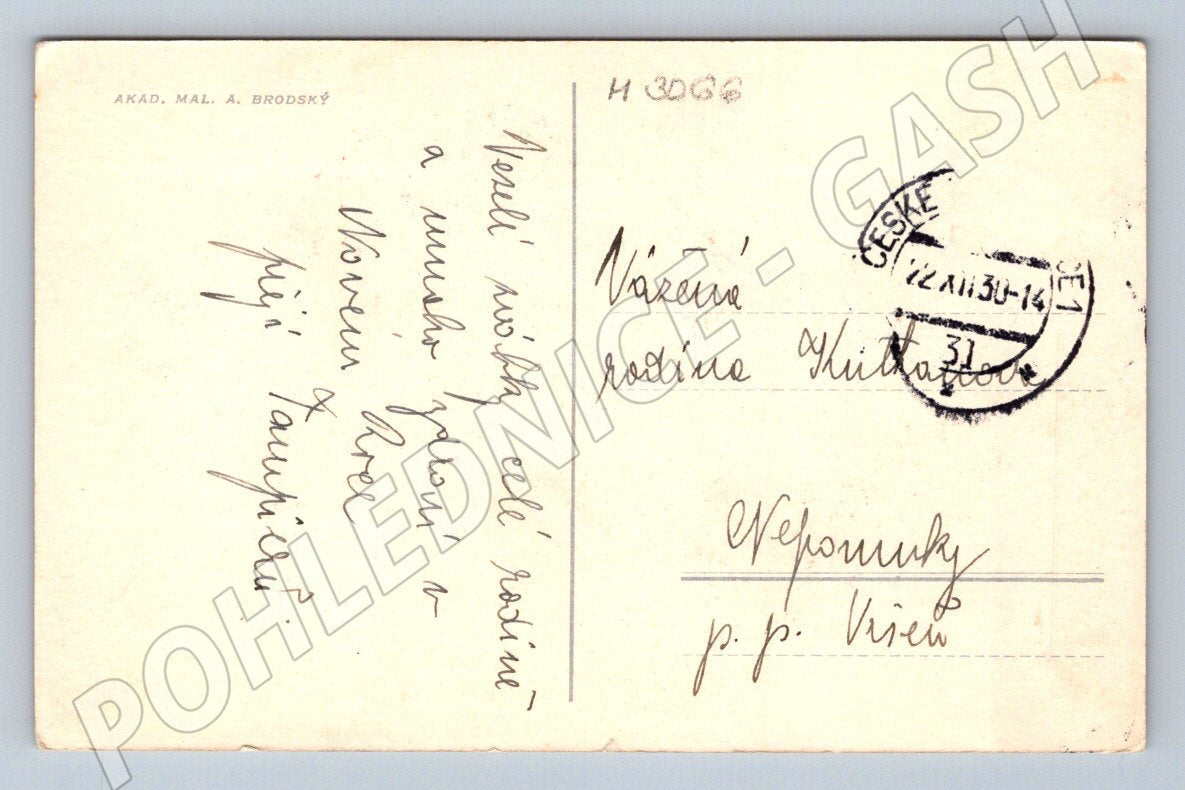 AKAD. MAL. A. BRODSKÝ
H 3066
Veselé svátky celé rodině
a mnoho zdraví v
Novém Roce
přejí
Vážená
rodina
Nepomuky
p. p. Všeň
ČESKÉ
CE1
22 XII 30-14
31
POHLEDNICE - GASH